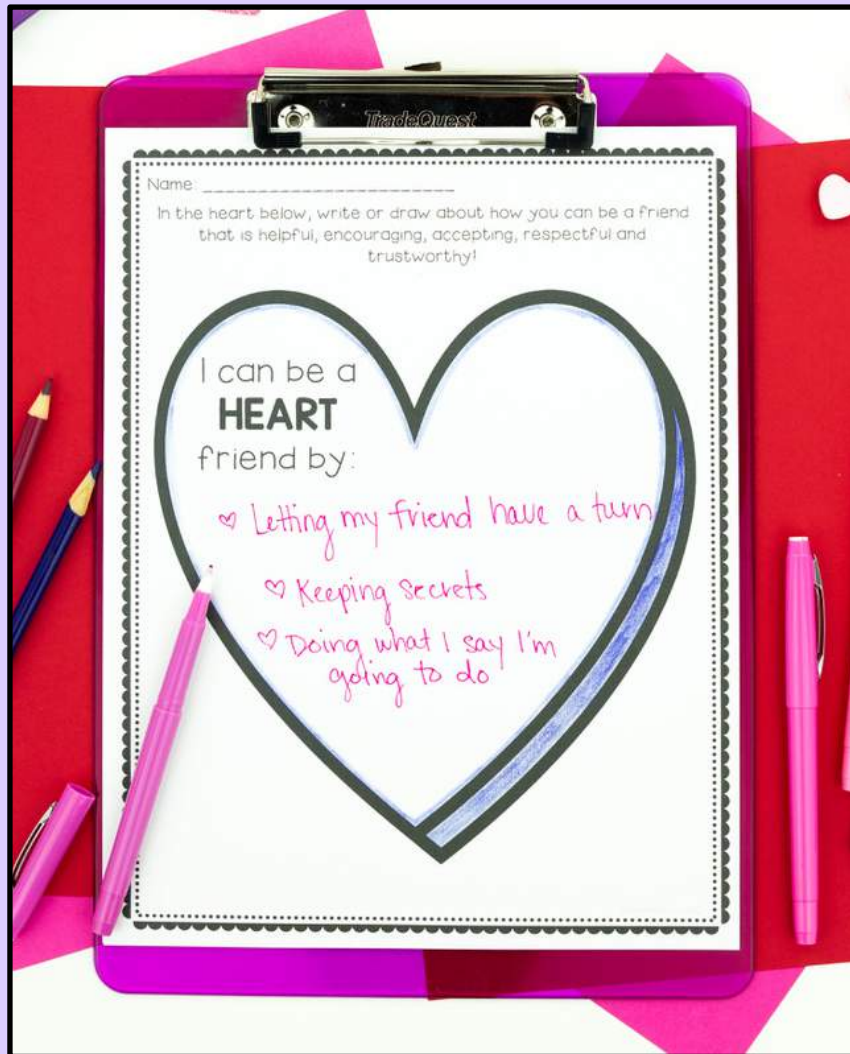 TradeQuest
Name: _______________________
In the heart below, write or draw about how you can be a friend
that is helpful, encouraging, accepting, respectful and
trustworthy!
I can be a
HEART
friend by:
♡ Letting my friend have a turn
♡ Keeping secrets
♡ Doing what I say I'm
going to do